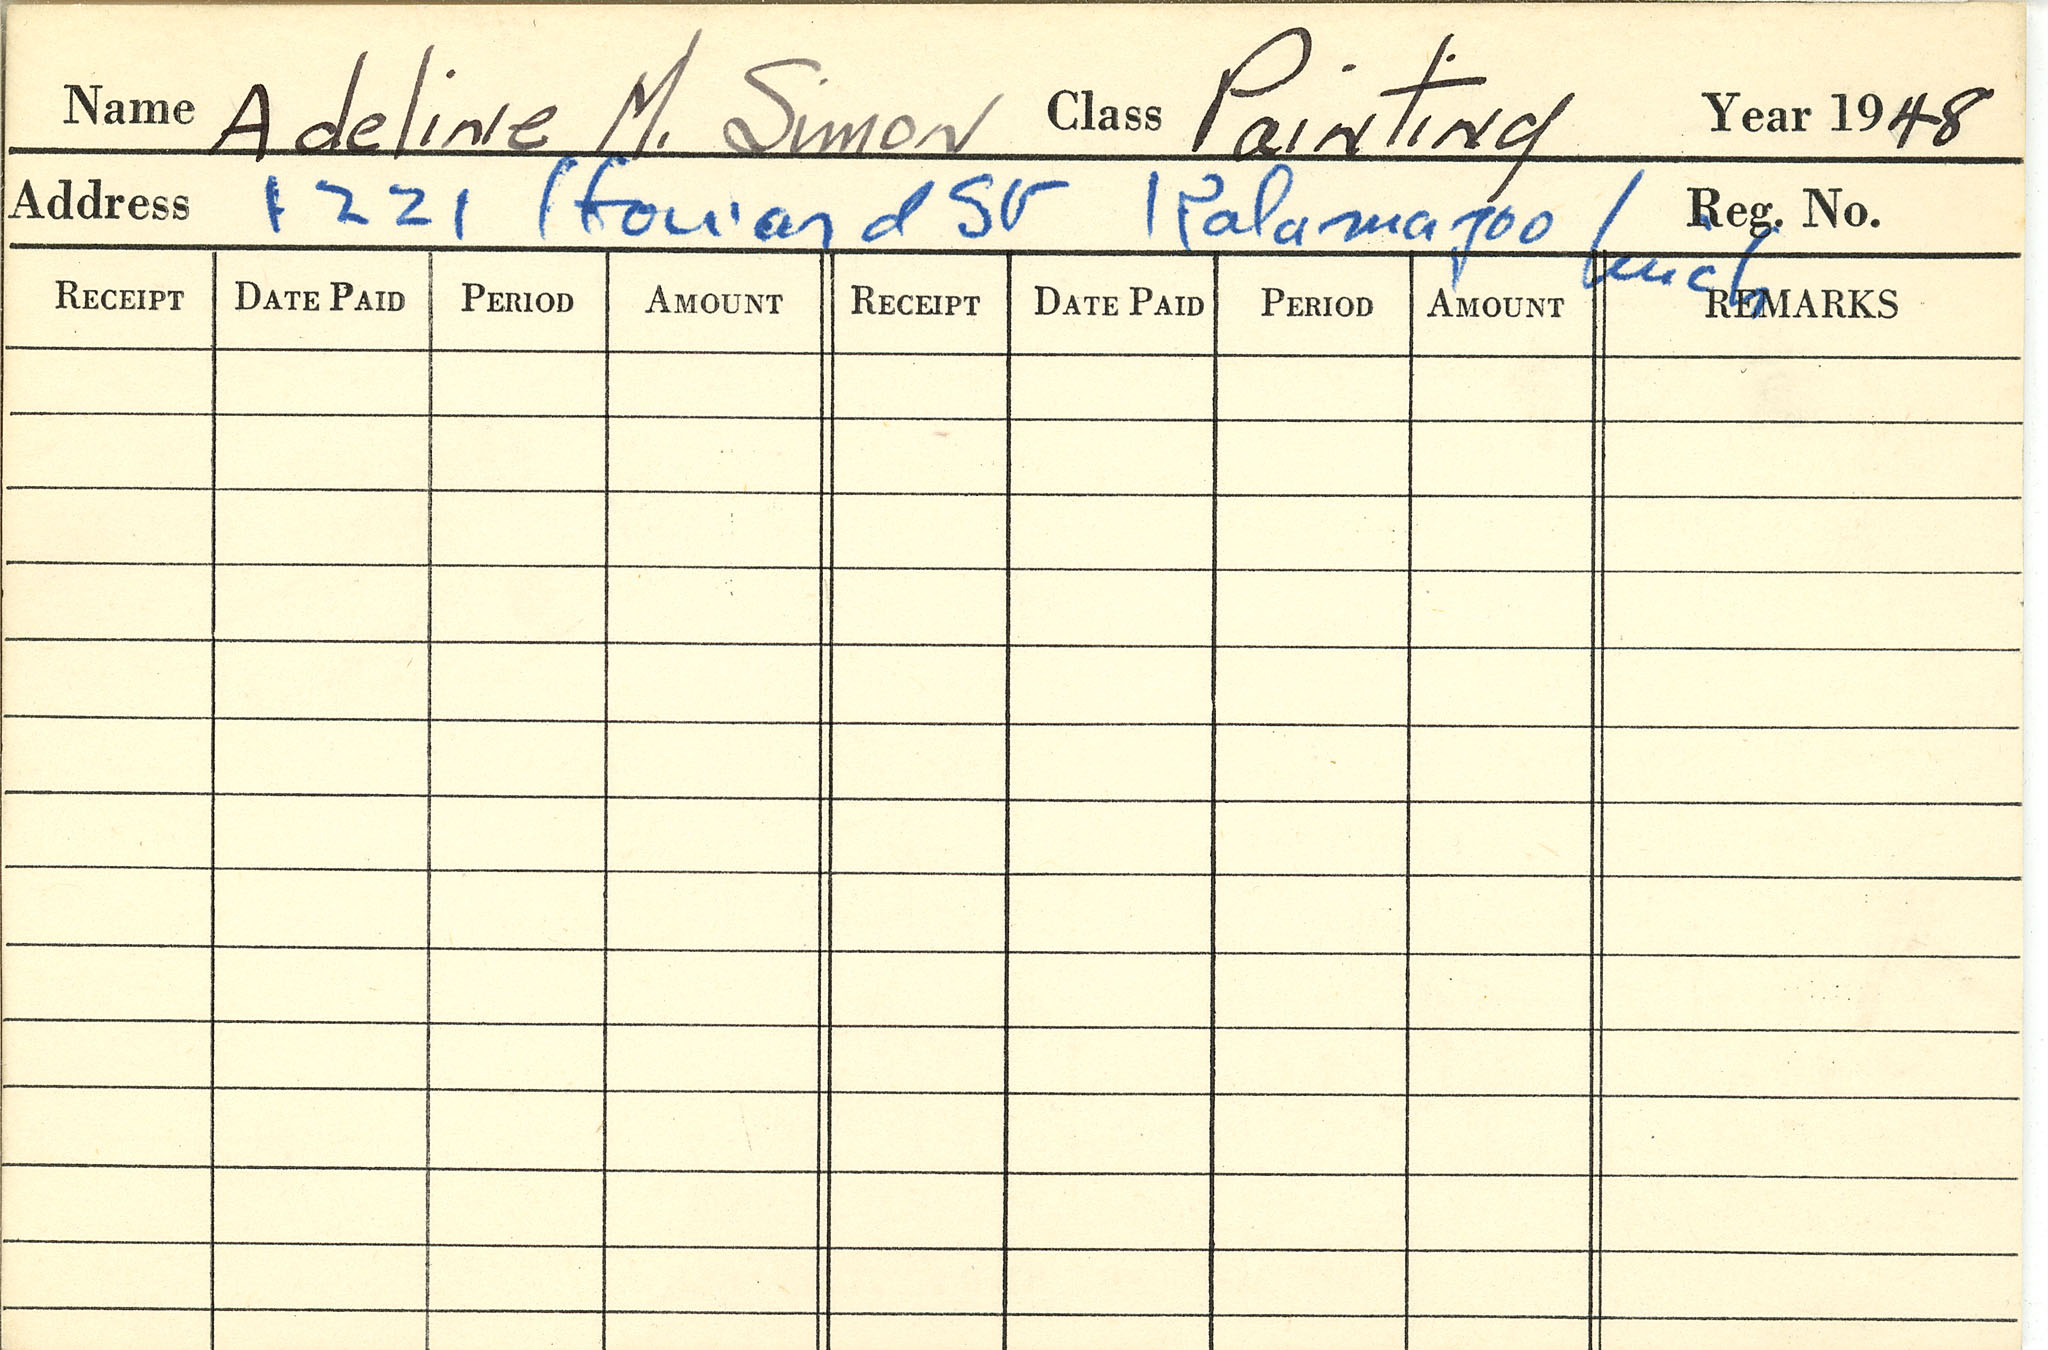 Name Adeline M. Simon Class Painting Year 1948
Address 1221 Howard St Kalamazoo Mich Reg. No.
RECEIPT DATE PAID PERIOD AMOUNT RECEIPT DATE PAID PERIOD AMOUNT REMARKS